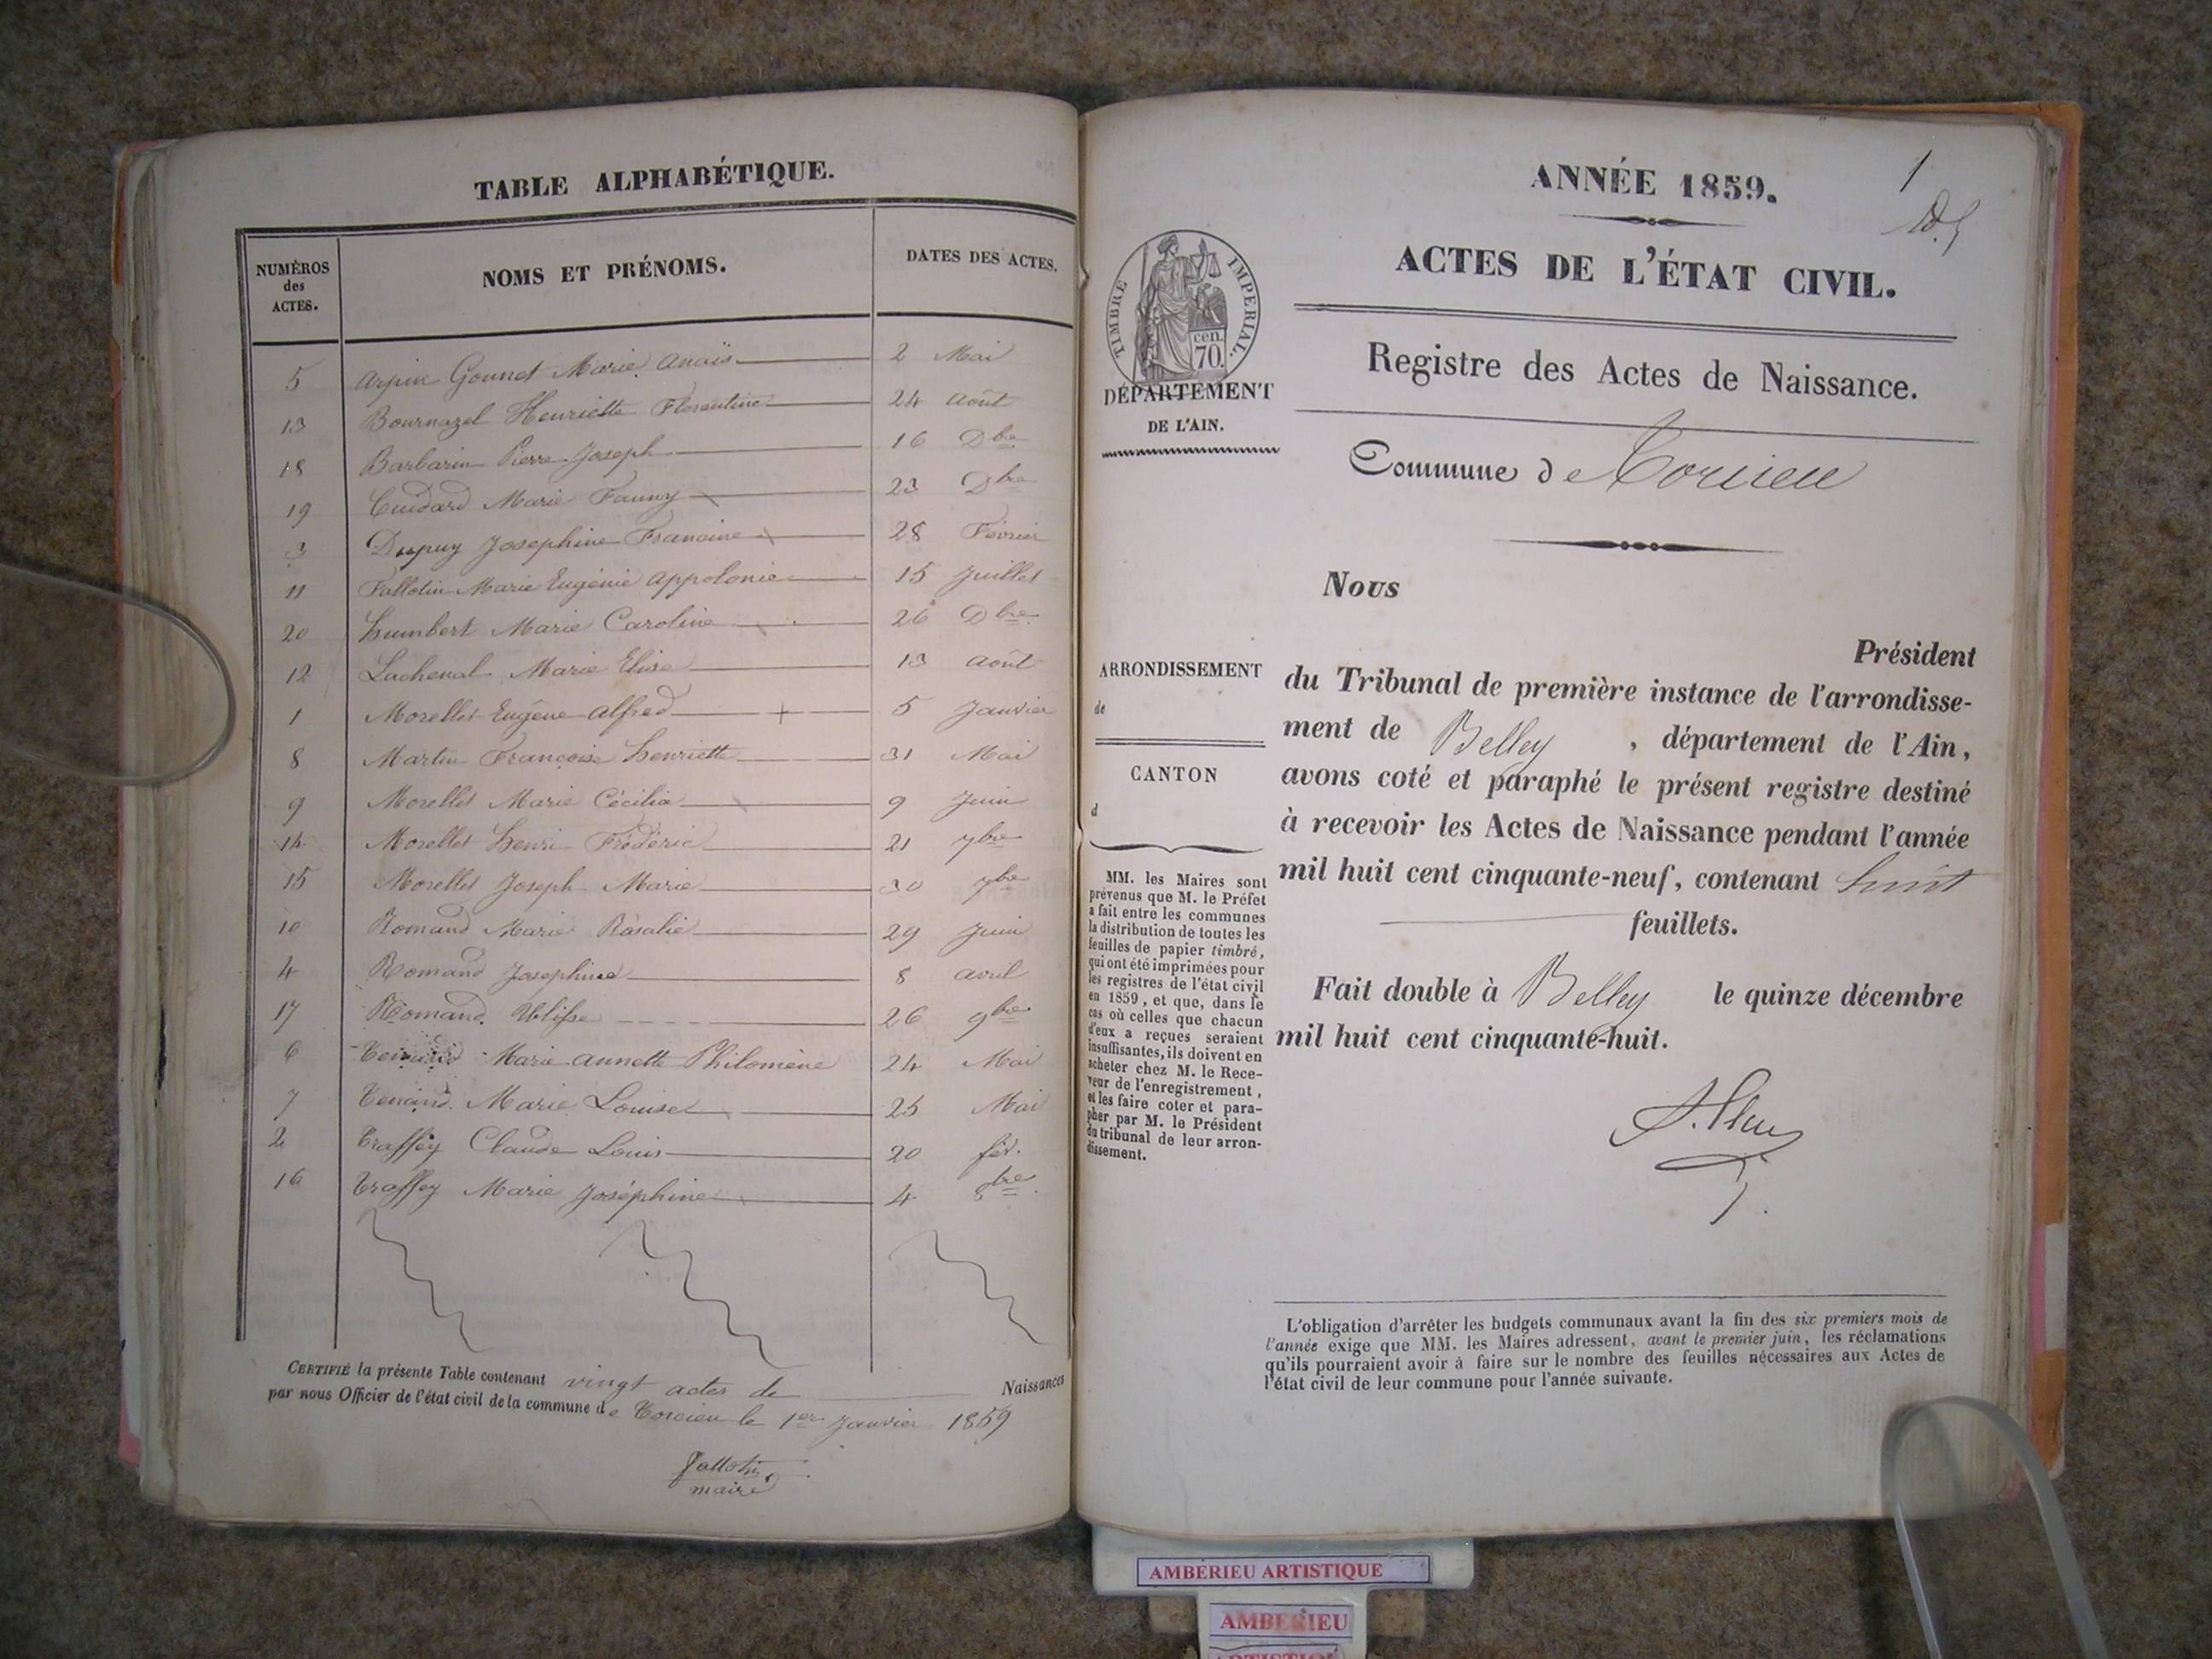 TABLE ALPHABÉTIQUE.
NUMÉROS des ACTES. NOMS ET PRÉNOMS. DATES DES ACTES.
5 Arpin Gonnet Marie Anaïs 2 Mai
13 Bournazel Henriette Florentine 24 Août
18 Barbarin Pierre Joseph 16 Dbre
19 Cuidard Marie Fanny 23 Dbre
3 Dupuy Josephine Francine 28 Février
11 Fallotin Marie Eugénie Appolonie 15 Juillet
20 Humbert Marie Caroline 26 Dbre
12 Lachenal Marie Elise 13 Août
1 Morellet Eugène Alfred 5 Janvier
8 Martin Françoise Henriette 31 Mai
9 Morellet Marie Cécilia 9 Juin
14 Morellet Henri Frédéric 21 7bre
15 Morellet Joseph Marie 30 7bre
10 Romand Marie Rosalie 29 Juin
4 Romand Josephine 8 avril
17 Romand Ulisse 26 9bre
6 Marie Annette Philomène 24 Mai
7 Tenand Marie Louise 25 Mai
2 Traffey Claude Louis 20 fév.
16 Traffey Marie Joséphine 4 8bre
CERTIFIÉ la présente Table contenant vingt actes de Naissances
par nous Officier de l'état civil de la commune de Torcieu le 1er Janvier 1859
Fallotin
maire
1
ANNÉE 1859.
ACTES DE L'ÉTAT CIVIL.
TIMBRE IMPERIAL.
cen.
70.
DÉPARTEMENT
DE L'AIN.
Registre des Actes de Naissance.
Commune de Torcieu
Nous
Président
ARRONDISSEMENT
de
CANTON
d
du Tribunal de première instance de l'arrondisse-
ment de Belley , département de l'Ain,
avons coté et paraphé le présent registre destiné
à recevoir les Actes de Naissance pendant l'année
mil huit cent cinquante-neuf, contenant huit
feuillets.
Fait double à Belley le quinze décembre
mil huit cent cinquante-huit.
MM. les Maires sont
prévenus que M. le Préfet
a fait entre les communes
la distribution de toutes les
feuilles de papier timbré,
qui ont été imprimées pour
les registres de l'état civil
en 1859, et que, dans le
cas où celles que chacun
d'eux a reçues seraient
insuffisantes, ils doivent en
acheter chez M. le Rece-
veur de l'enregistrement,
et les faire coter et para-
pher par M. le Président
du tribunal de leur arron-
dissement.
L'obligation d'arrêter les budgets communaux avant la fin des six premiers mois de
l'année exige que MM. les Maires adressent, avant le premier juin, les réclamations
qu'ils pourraient avoir à faire sur le nombre des feuilles nécessaires aux Actes de
l'état civil de leur commune pour l'année suivante.
AMBERIEU ARTISTIQUE
AMBERIEU
ARTISTIQUE